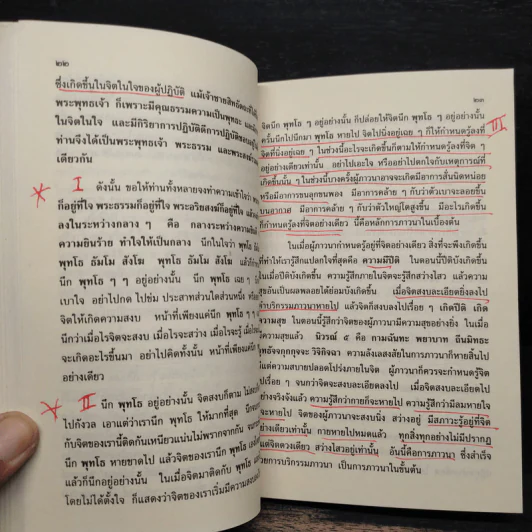 ๒๒
ซึ่งเกิดขึ้นในจิตในใจของผู้ปฏิบัติ แม้เจ้าชายสิทธัตถะที่ได้
พระพุทธเจ้า ก็เพราะมีคุณธรรมความเป็นพุทธะ
ในจิตในใจ และมีกิริยาการปฏิบัติดีการปฏิบัติชอบอยู่
ท่านจึงได้เป็นพระพุทธเจ้า พระธรรม และพระสงฆ์
เดียวกัน
I ดังนั้น ขอให้ท่านทั้งหลายจงทำความเข้าใจว่า
ก็อยู่ที่ใจ พระธรรมก็อยู่ที่ใจ พระอริยสงฆ์ก็อยู่ที่ใจ แล้ว
ลงในระหว่างกลาง ๆ คือ กลางระหว่างความ
ความยินร้าย ทำใจให้เป็นกลาง นึกในใจว่า พุทโธ
พุทโธ ธัมโม สังโฆ พุทโธ ธัมโม สังโฆ
นึก พุทโธ ๆ อยู่อย่างนั้น นึก พุทโธ เฉย ๆ
เบาใจ อย่าไปกด ไปข่ม ประสาทส่วนใดส่วนหนึ่ง
จิตให้เกิดความสงบ หน้าที่เพียงแค่นึก พุทโธ ๆ
นึกว่าเมื่อไรจิตจะสงบ เมื่อไรจะสว่าง เมื่อไรจะรู้
จะเกิดอะไรขึ้นมา อย่าไปคิดทั้งนั้น หน้าที่เพียงแค่
อย่างเดียว
II นึก พุทโธ อยู่อย่างนั้น จิตสงบก็ตาม ไม่
ไปกังวล เอาแต่ว่าเรานึก พุทโธ ให้มากที่สุด
กับจิตของเรานี้ติดกันเหนียวแน่นไม่พรากจากกัน
นึก พุทโธ หายขาดไป แล้วจิตของเรานึก พุทโธ
แล้วก็นึกอยู่อย่างนั้น ในเมื่อจิตมาติดกับ พุทโธ
โดยไม่ได้ตั้งใจ ก็แสดงว่าจิตของเราเริ่มมีความสงบ
๒๓
จิตนึก พุทโธ ๆ อยู่อย่างนั้น ก็ปล่อยให้จิตนึก พุทโธ ๆ อยู่อย่างนั้น
ครั้นนึกไปนึกมา พุทโธ หายไป จิตไปนิ่งอยู่เฉย ๆ ก็ให้กำหนดรู้ลงที่ III
จิตที่นิ่งอยู่เฉย ๆ ในช่วงนี้อะไรจะเกิดขึ้นก็ตามให้กำหนดรู้ลงที่จิต ๆ
อยู่อย่างเดียวเท่านั้น อย่าไปเอะใจ หรืออย่าไปตกใจกับเหตุการณ์ที่
เกิดขึ้นนั้น ๆ ในช่วงนี้บางครั้งผู้ภาวนาอาจจะเกิดมีอาการสั่นนิดหน่อย
หรือมีอาการขนลุกขนพอง มีอาการคล้าย ๆ กับว่าตัวเบาจะลอยขึ้น
บนอากาศ มีอาการคล้าย ๆ กับว่าตัวใหญ่โตสูงขึ้น มีอะไรเกิดขึ้น
ก็กำหนดรู้ลงที่จิตอย่างเดียว นี้คือหลักการภาวนาในเบื้องต้น
ในเมื่อผู้ภาวนากำหนดรู้อยู่ที่จิตอย่างเดียว สิ่งที่จะพึงเกิดขึ้น
ที่ทำให้เรารู้สึกแปลกใจที่สุดคือ ความมีปีติ ในตอนนี้ปีติบังเกิดขึ้น
เมื่อปีติบังเกิดขึ้น ความรู้สึกภายในจิตจะรู้สึกสว่างไสว แล้วความ
สุขอันเป็นผลพลอยได้ย่อมบังเกิดขึ้น เมื่อจิตสงบละเอียดยิ่งลงไป
คำบริกรรมภาวนาหายไป แล้วจิตก็สงบลงไปเรื่อย ๆ เกิดปีติ เกิด
ความสุข ในตอนนี้รู้สึกว่าจิตของผู้ภาวนามีความสุขอย่างยิ่ง ในเมื่อ
ความสุขแล้ว นิวรณ์ ๕ คือ กามฉันทะ พยาบาท ถีนมิทธะ
อุทธัจจกุกกุจจะ วิจิกิจฉา ความลังเลสงสัยในการภาวนาก็หายสิ้นไป
แต่ความสบายปลอดโปร่งภายในจิต ผู้ภาวนาก็ควรจะกำหนดรู้จิต
ไปเรื่อย ๆ จนกว่าจิตจะสงบละเอียดลงไป เมื่อจิตสงบละเอียดไป
อย่างจริงจังแล้ว ความรู้สึกว่ากายก็จะหายไป ความรู้สึกว่ามีลมหายใจ
จะหายไป จิตของผู้ภาวนาจะสงบนิ่ง สว่างอยู่ มีสภาวะรู้อยู่ที่จิต
อย่างเดียวเท่านั้น กายหายไปหมดแล้ว ทุกสิ่งทุกอย่างไม่มีปรากฏ
แต่จิตดวงเดียว สว่างไสวอยู่เท่านั้น อันนี้คือการภาวนา ซึ่งสำเร็จ
ด้วยการบริกรรมภาวนา เป็นการภาวนาในขั้นต้น